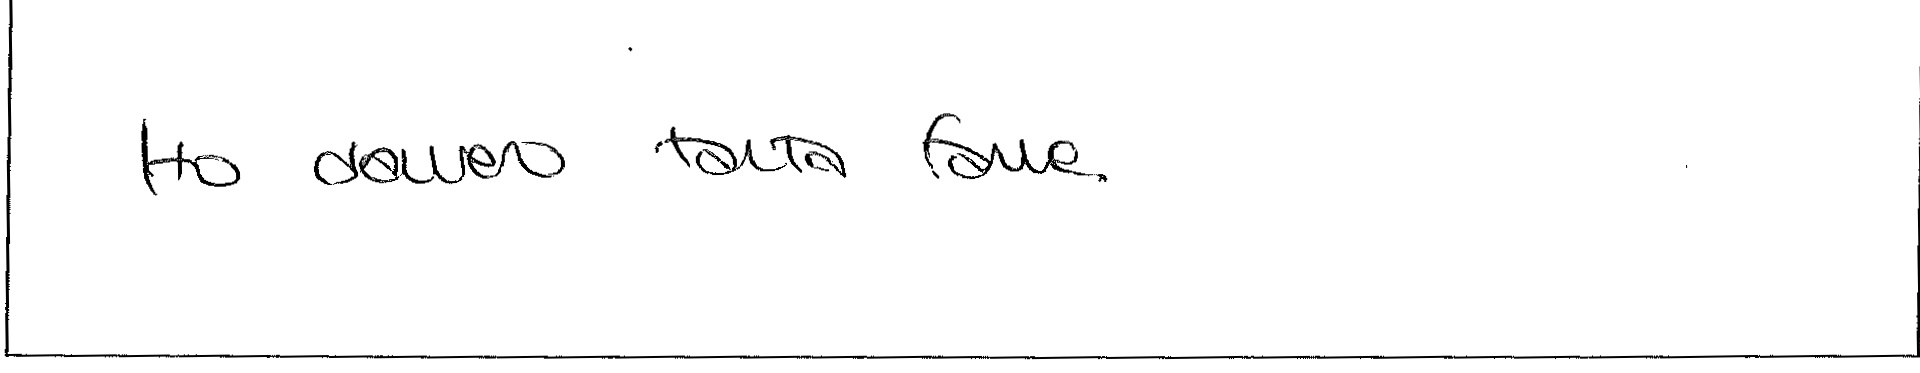 Ho davvero tanta fame.